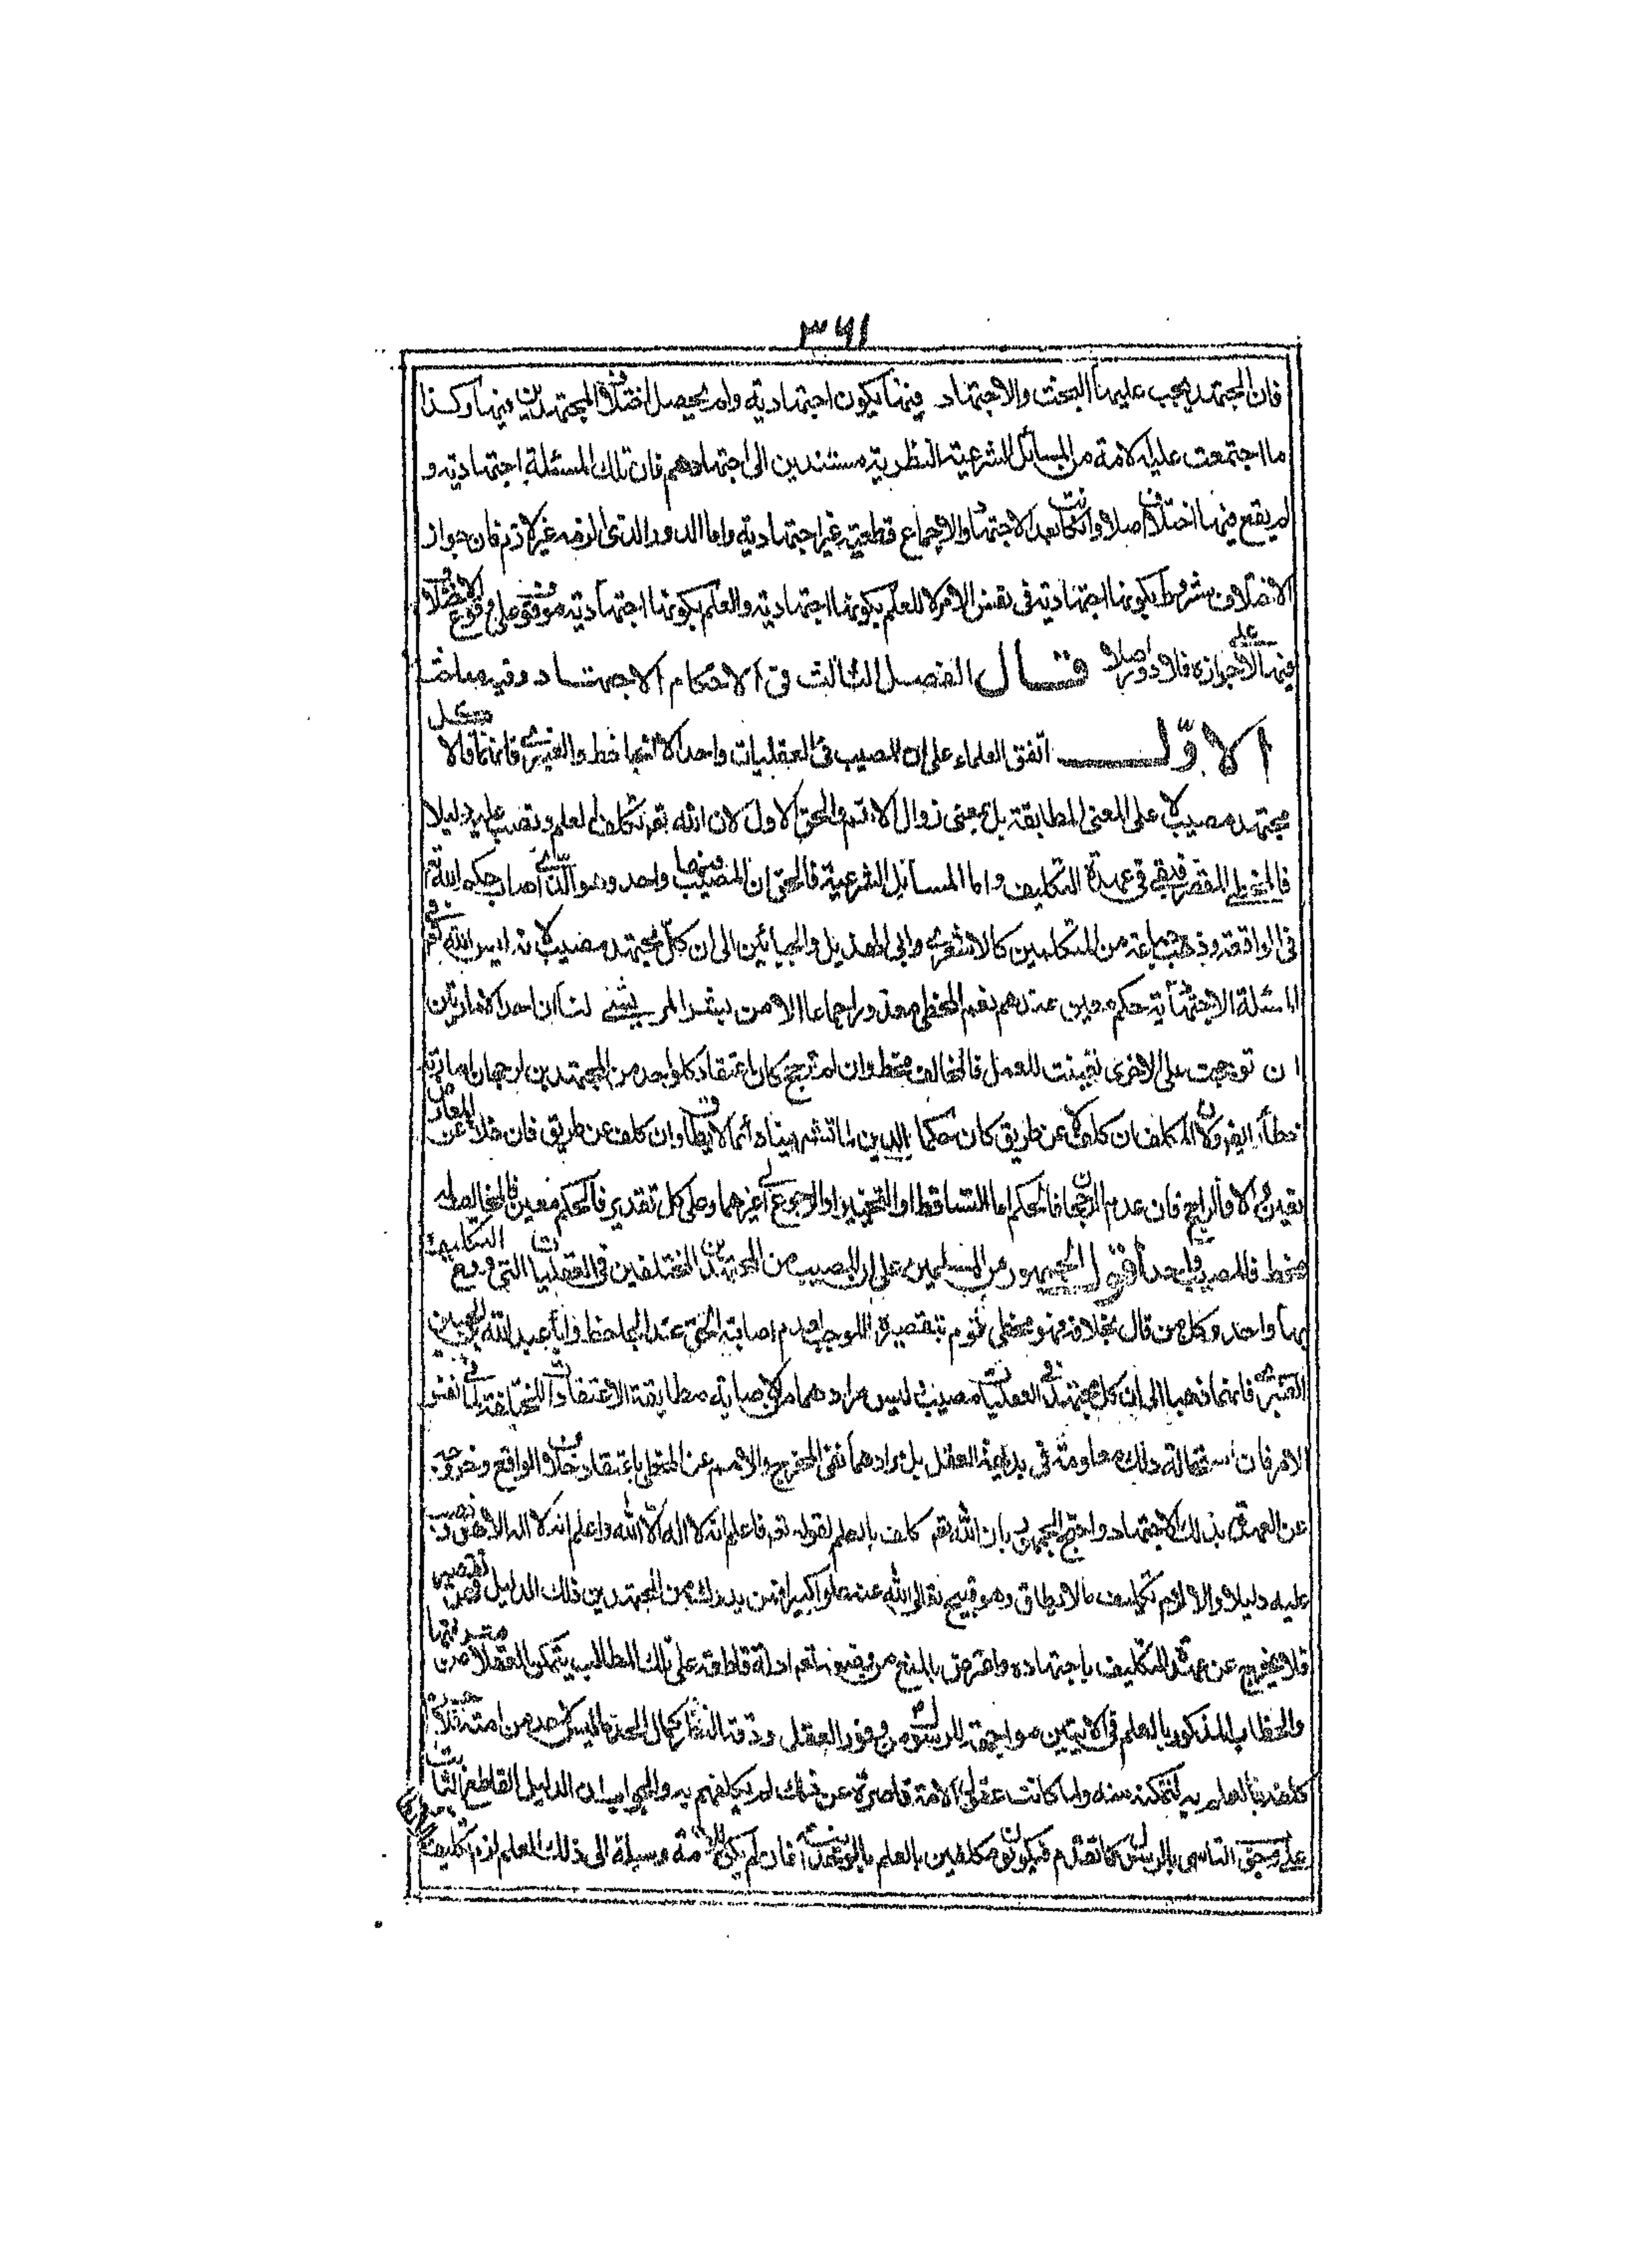 ٣٦١
فان المجتهد يجب عليه البحث والاجتهاد فيها فيكون اجتهادية وان لم يحصل اختلاف المجتهدين فيها وكذا
ما اجتمعت عليه الامة من المسائل الشرعية النظرية مستندين الى اجتهادهم فان تلك المسئلة اجتهادية و
لم يقع فيها اختلاف اصلا وانكانت بعد الاجتهاد والاجماع قطعية غير اجتهادية واما الدور الذى الزمه غير لازم فان جواز
الاختلاف مشروط بكونها اجتهادية فى نفس الامر لا للعلم بكونها اجتهادية والعلم بكونها اجتهادية موقوف على وقوع الاختلاف
فيها لا على جوازه فلا دور اصلا قال الفصل الثالث فى الاحكام الاجتهاد وفيه مباحث
الاوّل اتفق العلماء على ان المصيب فى العقليات واحد الا الجاحظ والعنبرى فانهما قالا كل
مجتهد مصيب لا على المعنى المطابقة بل بمعنى زوال الاثم والحق الاول لان الله تع كلف العلم ونصب عليه دليلا
فالمخطى المقصر فيبقى فى عهدة التكليف واما المسائل الشرعية فالحق ان المصيب فيها واحد وهو الذى اصاب حكم الله تع
فى الواقعة وذهب جماعة من المتكلمين كالاشعرى وابى الهذيل والجبائين الى ان كل مجتهد مصيب لانه ليس لله تع فى
المسئلة الاجتهادية حكم معين عندهم نعم المخطى معذور اجماعا الا من بشر المريسى لنا ان احد الامارتين
ان توجهت على الاخرى تعينت للعمل فالمخالف مخط وان لم ترجح كان اعتقاد كل واحد من المجتهدين لرجحان امارته
خطأ ايضا ولان المكلف ان كلف لا عن طريق كان حكما بالدين اما تشهيا واما لا يطاق وان كلف عن طريق فان خلا عن المعارض
تعين والا فالراجح فان عدم الرجحان فالحكم اما التساقط او التخيير او الرجوع الى غيرهما وعلى كل تقدير فالحكم معين فالمخالف له
مخط فالمصيب واحد اقول الجمهور من المسلمين على ان المصيب من المجتهدين المختلفين فى العقليات التى وقع التكليف
بها واحد وكل من قال بخلافه فهو مخطى مأثوم بتقصيره الموجب لعدم اصابة الحق عند الجاحظ وابا عبد الله بن الحسين
العنبرى فانهما ذهبا الى ان كل مجتهد فى العقليات مصيب ليس مرادهما من الاصابة مطابقة الاعتقادات المختلفة لما فى نفس
الامر فان استحالة ذلك معلومة فى بديهة العقل بل مرادهما نفى الحرج والاثم عن المخطى باعتقاد خلاف الواقع وخروجه
عن العهدة بذلك الاجتهاد واحتج الجمهور بان الله تع كلف بالعلم لقوله تع فاعلم انه لا اله الا الله واعلم انه لا اله الا هو ونصب
عليه دليلا والا لزم تكليف ما لا يطاق وهو قبيح تعالى الله عنه علوا كبيرا فمن يدرك من المجتهدين ذلك الدليل فمن تقصيره
فلا يخرج عن عهدة التكليف باجتهاده واعترض بالمنع من وضعه تع ادلة قاطعة على تلك المطالب يتمكن العقلاء من معرفتها
والخطاب المذكور بالعلم فى الايتين مواجهة للرسول ص مع وفور العقل ودقة النظر وكمال الحق ما ليس لاحد من امته فلا
كلفه بالعلم به لتمكنه منه ولما كانت عقول الامة قاصرة عن ذلك لم يكلفهم به والجواب ان الدليل القاطع الثابت
على وجوب التاسى بالرسول ص كما تقدم فيكونون مكلفين بالعلم بالوحدانية فان لم يكن للامة وسيلة الى ذلك العلم لزم تكليف